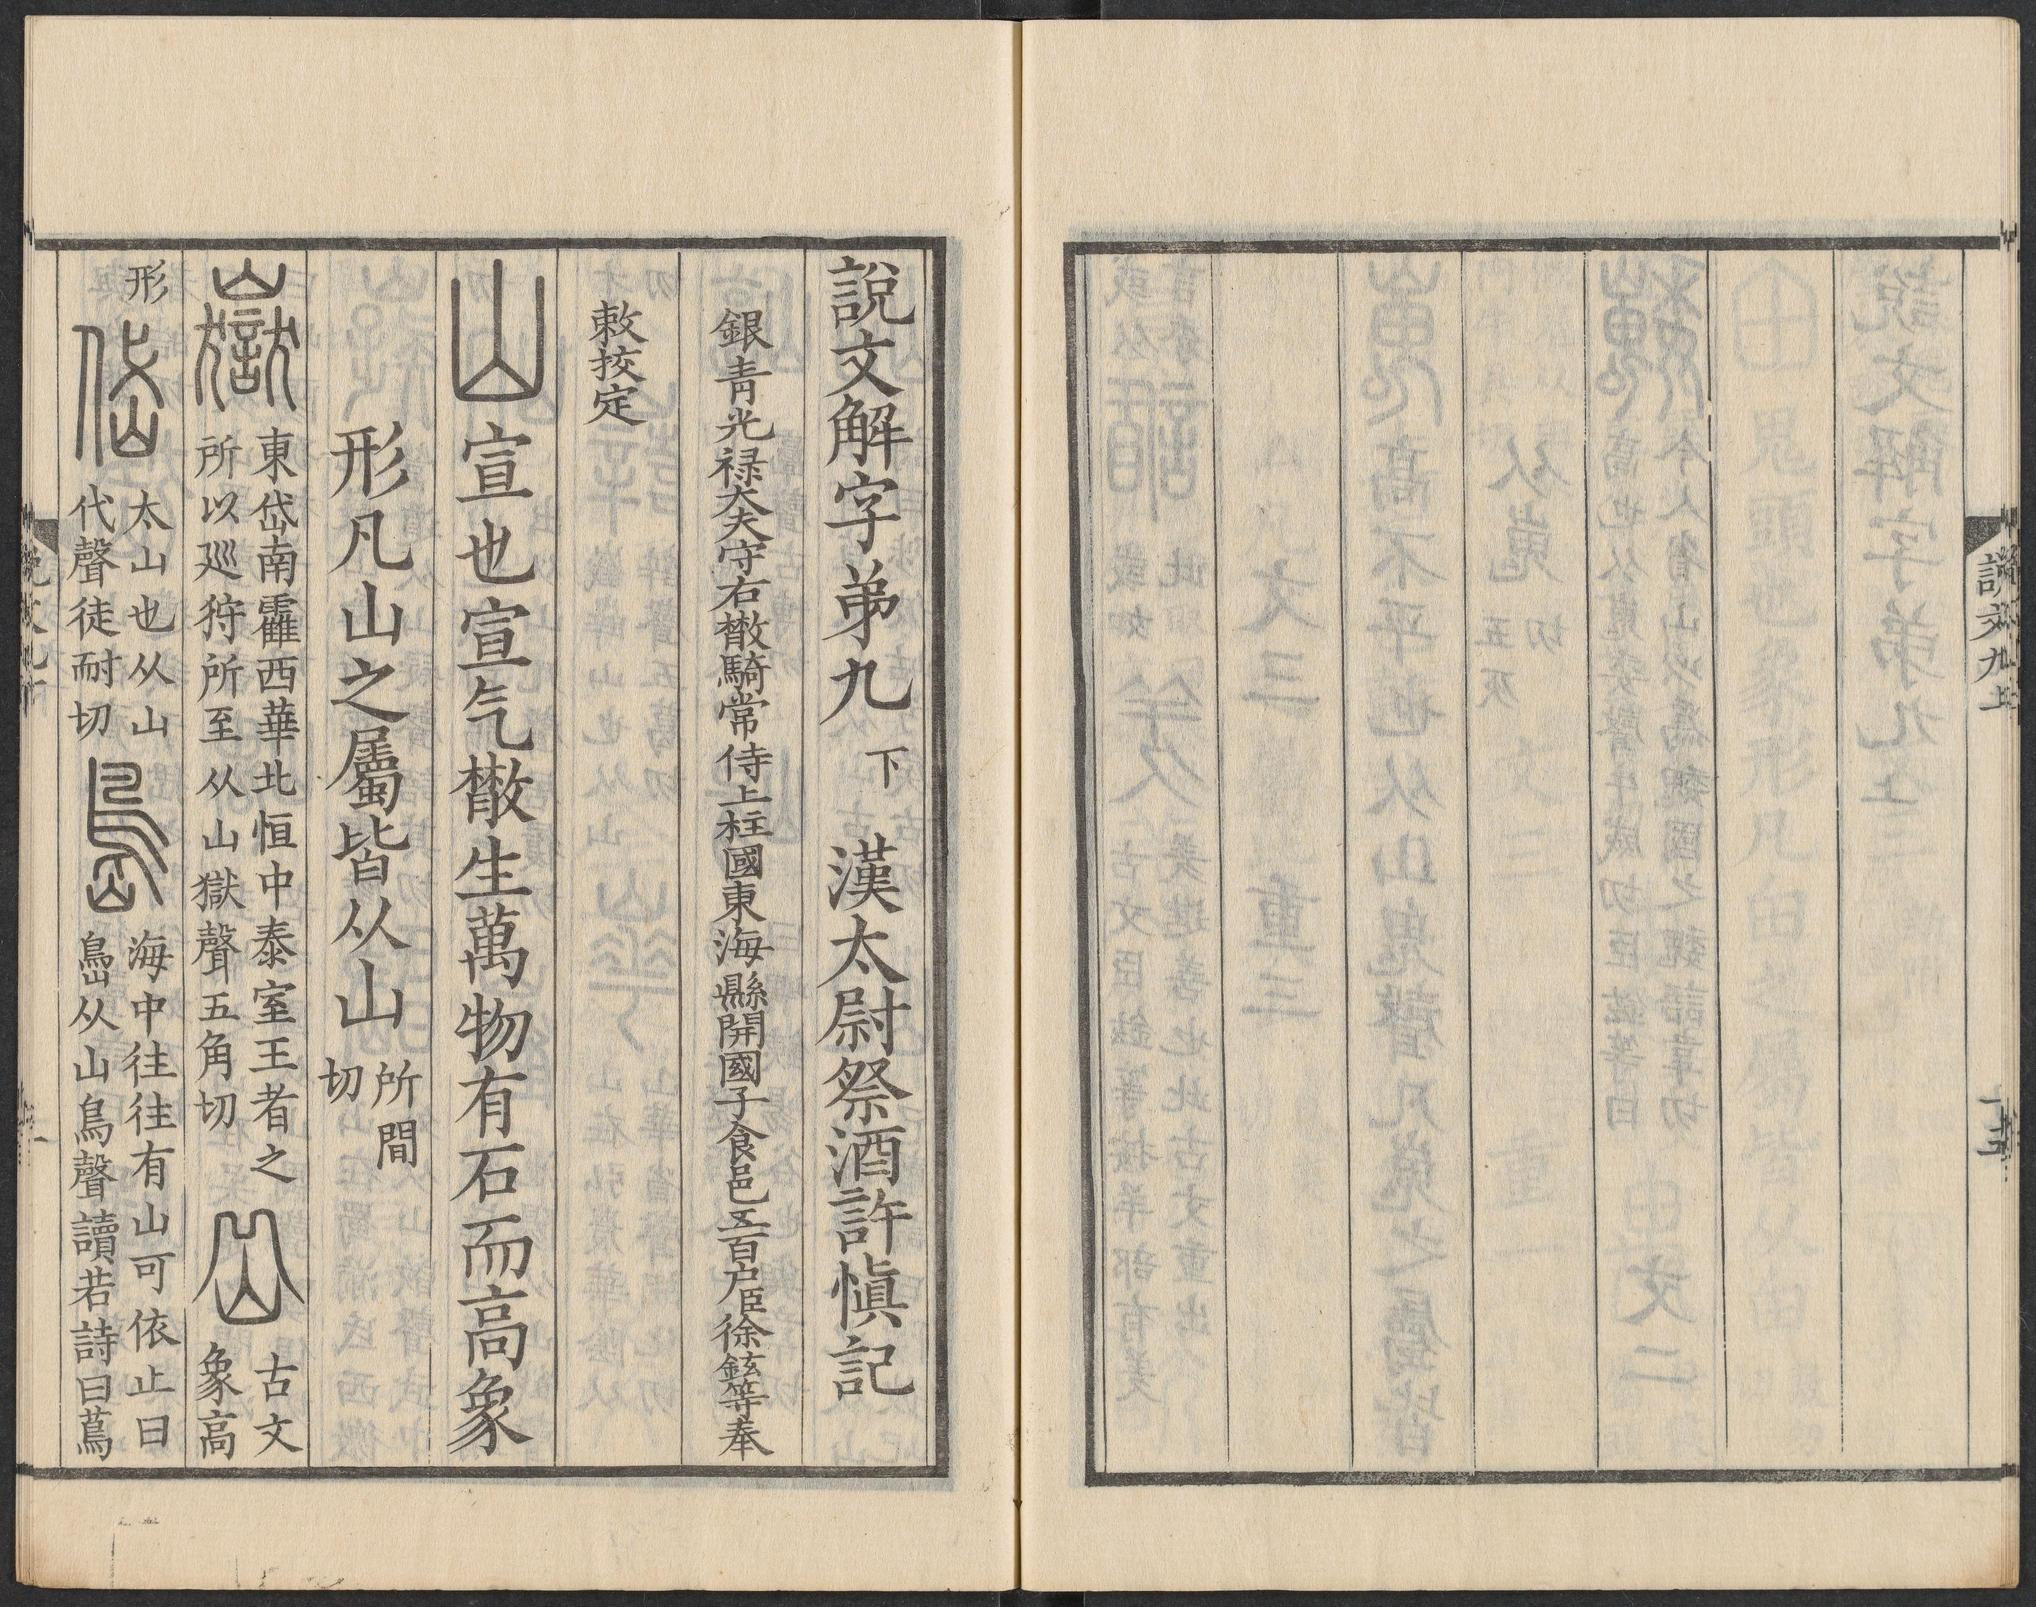 說文九上
十五
說文解字弟九 下 漢太尉祭酒許愼記
銀青光禄大夫守右㪚騎常侍上柱國東海縣開國子食邑五百户臣徐鉉等奉
敕挍定
山 宣也宣气㪚生萬物有石而高象
形凡山之屬皆从山 所間切
嶽 東岱南靃西華北恒中泰室王者之
所以巡狩所至从山獄聲五角切 𡶳 古文
象高
形 岱 太山也从山
代聲徒耐切 島 海中往往有山可依止曰
島从山鳥聲讀若詩曰蔦